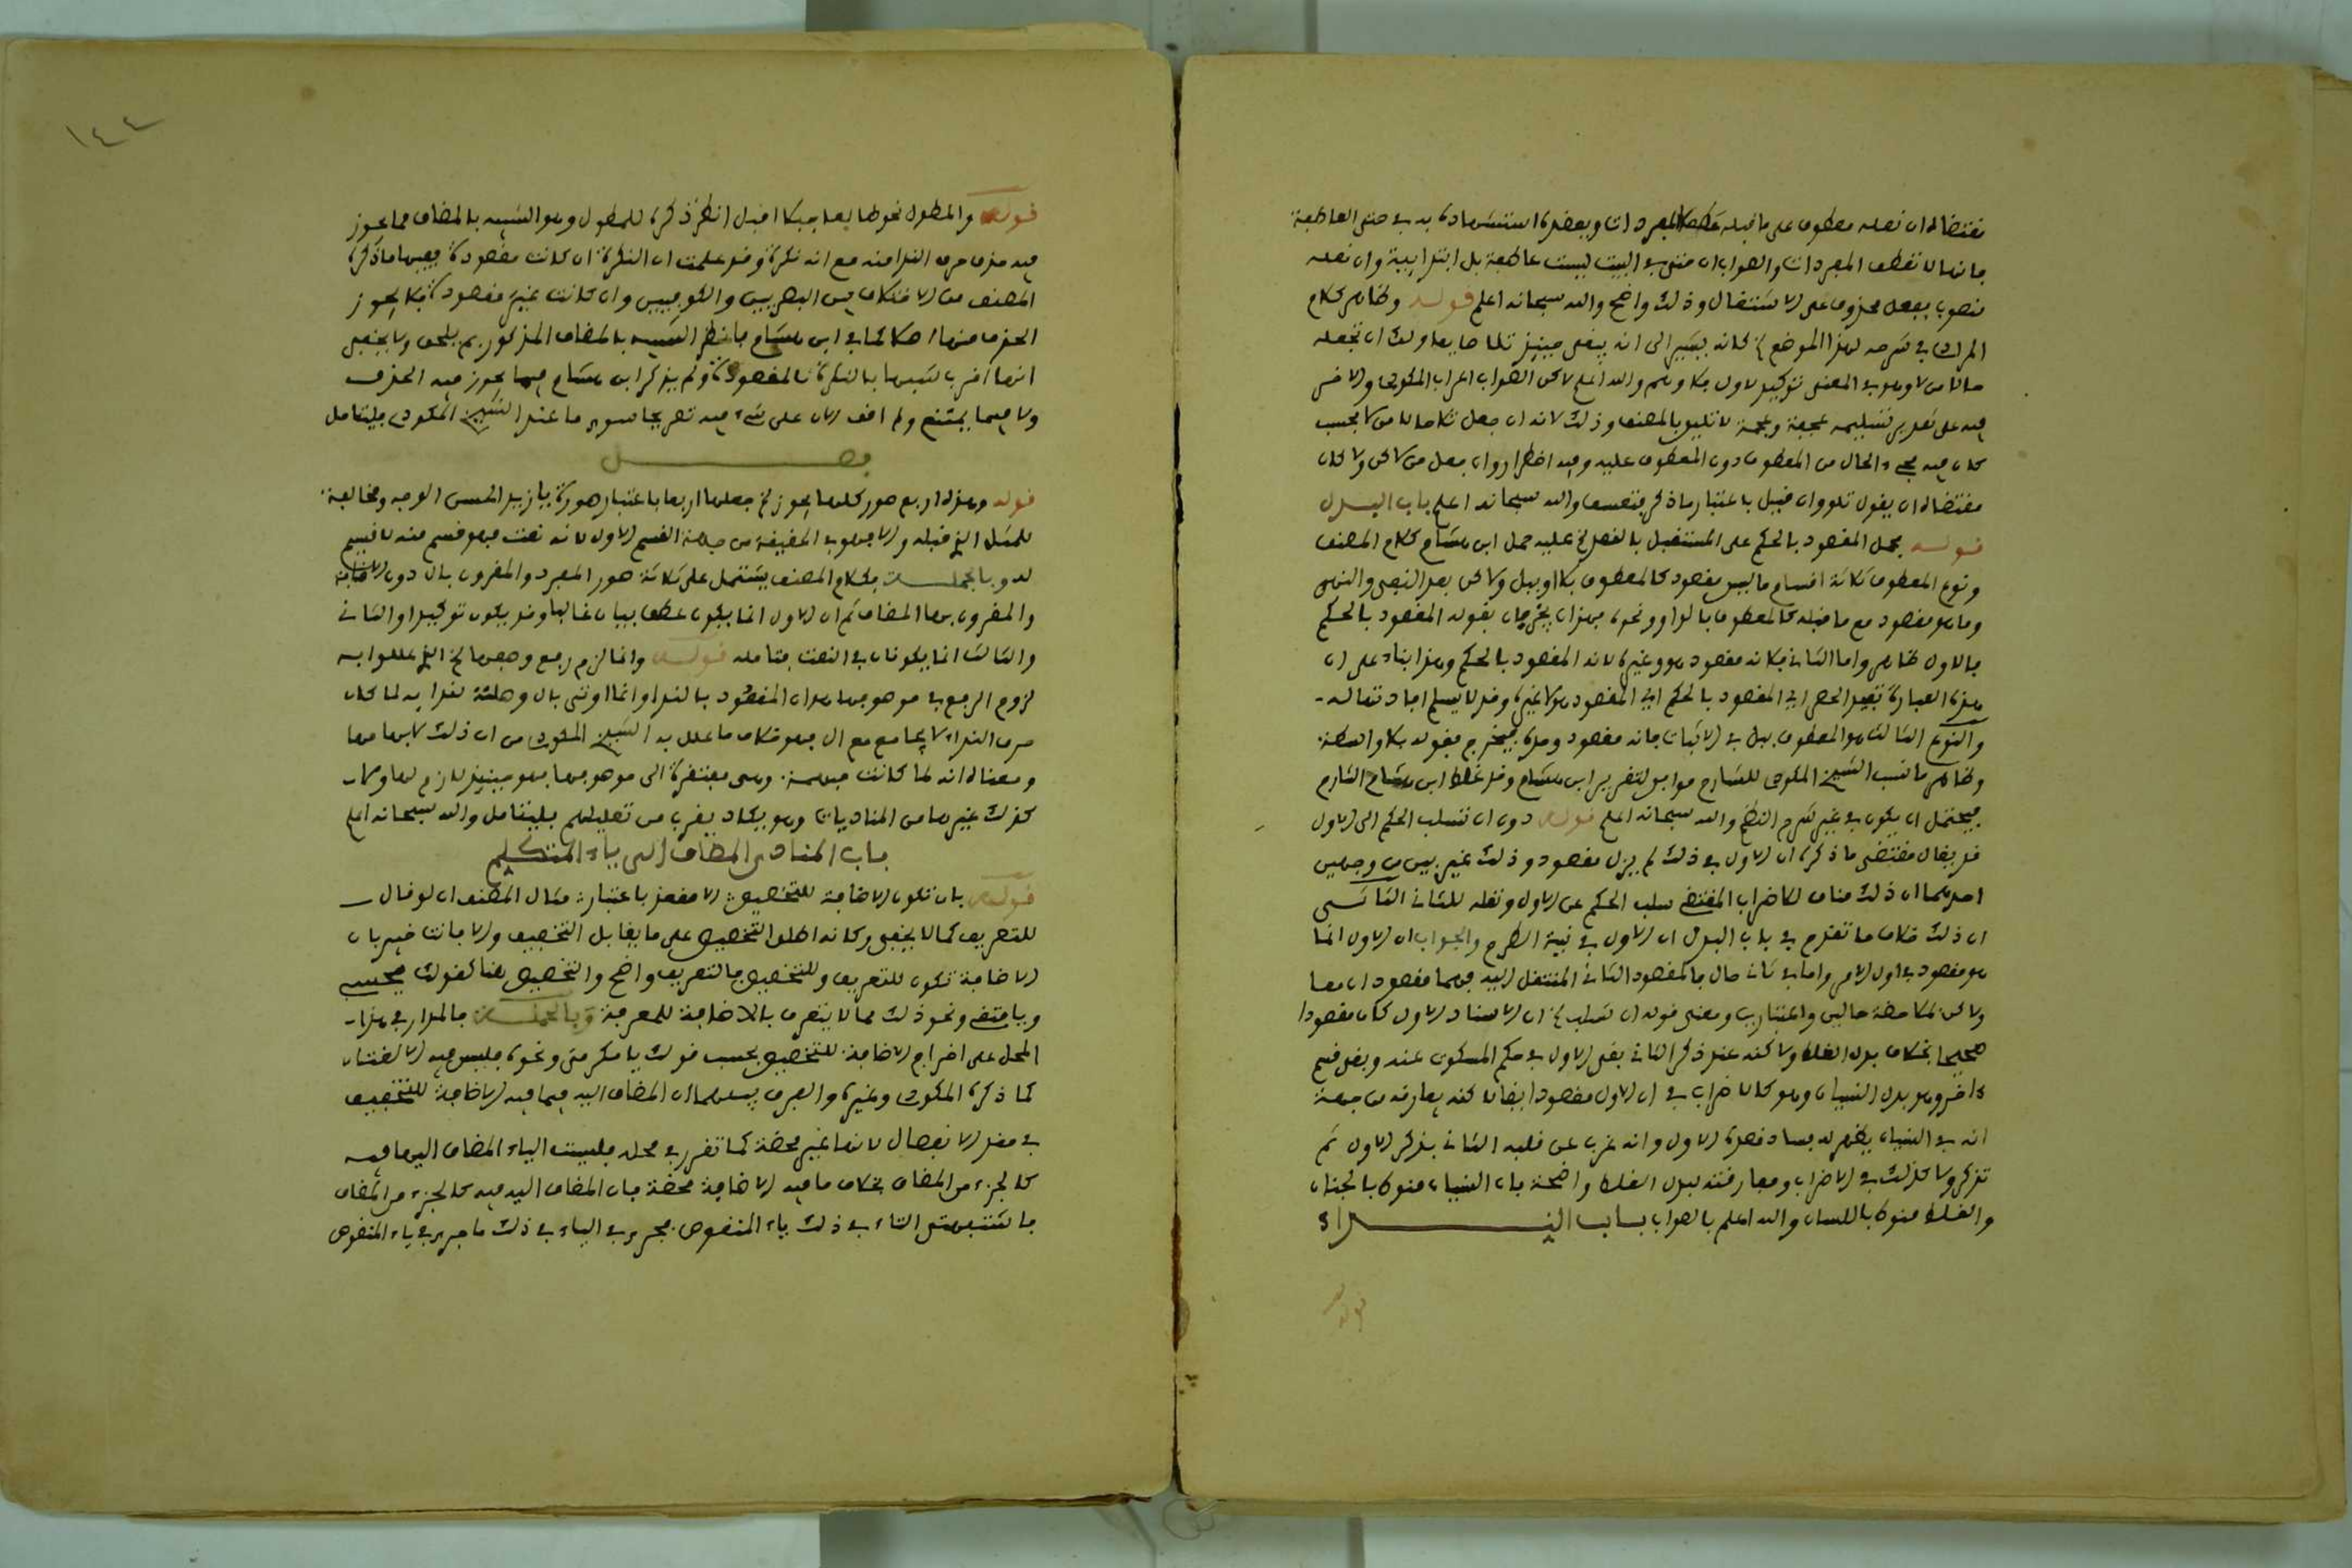 مقتضاه ان نعله معطوف على ما قبله عطف المفردات وبعضهم استشهاده به في حتى العاطفة
فانها لا تعطف المفردات والصواب ان حتى في البيت ليست عاطفة بل ابتدائية وان نعله
منصوب بفعل محذوف على الاشتغال وذلك واضح والله سبحانه اعلم قوله وظاهر كلام
المرادي في شرحه لهذا الموضع كانه يشير الى انه يبقى حينئذ ولك ان تجعله
حالا من لا وهو في المعنى توكيد لاول بلا وهم والله اعلم لاكن الصواب اعراب المكودي
فيه على تقدير تسليمه لا تليق بالمصنف وذلك لانه ان جعل حالا من لا بحسب
كان فيه مجيء الحال من المعطوف دون المعطوف عليه وفيه اضطرار وان جعل من لاكن ولا كان
مقتضاه ان يقول تلو وان قيل باعتبار ما ذكر فتعسف والله سبحانه اعلم باب البدل
قوله يحمل المقصود بالحكم على المستقبل بالقصد عليه حمل ابن هشام كلام المصنف
ونوع المعطوف ثلاثة اقسام ما ليس مقصودا كالمعطوف بلا او ببل ولاكن بعد النفي والنهي
وما هو مقصود مع ما قبله كالمعطوف بالواو ونحوه فهذان يخرجان بقوله المقصود بالحكم
فالاول ظاهر واما الثاني فلانه مقصود هو وغيره لا انه المقصود بالحكم وهذا بناء على ان
هذه العبارة تفيد الحصر اي المقصود بالحكم اي المقصود هو لا غيره وقد لا يسلم افادتها له
والنوع الثالث هو المعطوف ببل في الاثبات فانه مقصود وحده فيخرج بقوله بلا واسطة
وظاهر ما نسب الشيخ المكودي للشارح موافق لتقرير ابن هشام وقد غلط ابن هشام الشارح
فيحتمل ان يكون في غير شرح النظم والله سبحانه اعلم قوله دون ان تسلب الحكم الى الاول
قد يقال مقتضى ما ذكره ان الاول في ذلك لم يزل مقصودا وذلك غير بين من وجهين
احدهما ان ذلك مناف للاضراب المقتضي سلب الحكم عن الاول ونقله للثاني الثاني
ان ذلك خلاف ما تقدم في باب البدل ان الاول في نية الطرح والجواب ان الاول انما
هو مقصود في اول الامر واما في ثاني حال فالمقصود الثاني المنتقل اليه فهما مقصودان معا
ولاكن بملاحظة حالين واعتبارين ومعنى قوله ان تسلب ان الاسناد الاول كان مقصودا
صحيحا بخلاف بدل الغلط ولاكنه عند ذكر الثاني بقي الاول في حكم المسكوت عنه وبقي قسم
ءاخر وهو بدل النسيان وهو كالاضراب في ان الاول مقصود ايضا لاكنه يفارقه من جهة
انه في النسيان يظهر له فساد قصده الاول وانه غرب عن قلبه الثاني بذكر الاول ثم
تذكره ولا كذلك في الاضراب ومفارقته لبدل الغلط واضحة بان النسيان منوط بالجنان
والغلط منوط باللسان والله اعلم بالصواب باب النداء
قوله
١٤٤
قوله والمطول نحو طالعا جبلا اقبل انظر ذكره للمطول وهو الشبيه بالمضاف مما يجوز
فيه حذف حرف الندا منه مع انه نكرة وقد علمت ان النكرة ان كانت مقصودة ففيها ما ذكره
المصنف من الاختلاف بين البصريين والكوفيين وان كانت غير مقصودة فلا يجوز
الحذف منها اصلا كما في ابن هشام فانظر الشبيه بالمضاف المذكور بم يلحق ولا يخفى
انها اقرب شبها بالنكرة المقصودة ولم يذكر ابن هشام فيما يجوز فيه الحذف
ولا فيما يمتنع ولم اقف الان على شيء فيه تصريحا سوى ما عند الشيخ المكودي فليتامل
فصل
قوله وهذه اربع صور كلها يجوز جعلها اربعا باعتبار صورة يا زيد الحسن الوجه ومخالفة
للمثل التي قبله والا فهو في الحقيقة من جملة القسم الاول لانه نعت فهو قسم منه لا قسيم
له وبالجملة فكلام المصنف يشتمل على ثلاثة صور المفرد والمقرون بال دون الاضافة
والمقرون بها المضاف ثم ان الاول انما يكون عطف بيان غالبا وقد يكون توكيدا والثاني
والثالث انما يكونان في النعت فتامله قوله وانما لزم رفع وصفها الخ الذي عللوا به
لزوم الرفع في موصوفها هذا ان المقصود بالندا وانما اوتي بال وصلة لندايه لما كان
حرف النداء لا يجامع مع ال فهو خلاف ما علل به الشيخ المكودي من ان ذلك لابهامها
ومعناه انه لما كانت مبهمة وهى مفتقرة الى موصوفها فهو حينئذ لازم لها ولا
كذلك غيرها من المناديات وهو يكاد يقرب من تعليلهم فليتامل والله سبحانه اعلم
باب المنادى المضاف الى ياء المتكلم
قوله بان تكون الاضافة للتخصيص الا مقعر باعتبار مثال المصنف ان لو قال
للتعريف كما لا يخفى وكانه اطلق التخصيص على ما يقابل التخفيف والا فانت خبير بان
الاضافة تكون للتعريف وللتخصيص فالتعريف واضح والتخصيص هنا كقولك يحسب
ويا ونحو ذلك مما لا يتعرف بالاضافة للمعرفة وبالجملة فالمدار في هذا
المحل على اخراج الاضافة للتخصيص بحسب قولك يا مكرمي ونحوه فليس فيه الا لغتان
كما ذكره المكودي وغيره والفرق بينهما ان المضاف اليه فيما فيه الاضافة للتخفيف
في مقدر الانفصال لانها غير محضة كما تقرر في محله فليست الياء المضاف اليها فيه
كالجزء من المضاف بخلاف ما فيه الاضافة محضة فان المضاف اليه فيه كالجزء من المضاف
فاشبهت الياء في ذلك ياء المنقوص فجرى في الياء في ذلك ما جرى في ياء المنقوص